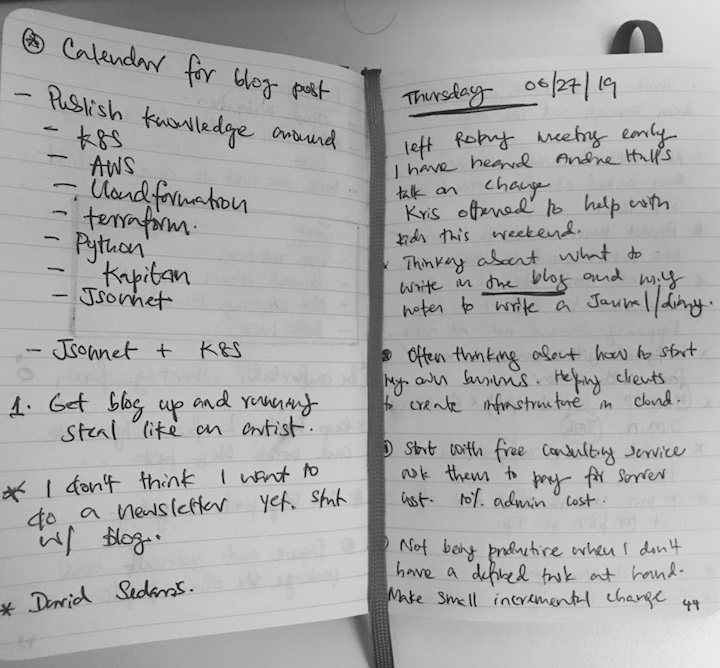 Calendar for blog post
- Publish knowledge around
- K8S
- AWS
- Cloudformation
- terraform.
- Python
- Kapitan
- Jsonnet
- Jsonnet + K8S
1. Get blog up and running
steal like an artist.
* I don't think I want to
do a newsletter yet. start
w/ blog.
* David Sedaris.
Thursday 06/27/19
left Rotary meeting early
I have heard Andre Hall's
talk on change
Kris offered to help with
kids this weekend.
Thinking about what to
write in the blog and
notes to write a Journal/diary.
Often thinking about how to start
my own business. Helping clients
to create infrastructure in cloud.
Start with free consulting service
ask them to pay for server
cost. 10% admin cost.
Not being productive when I don't
have a defined task at hand.
Make small incremental change
44